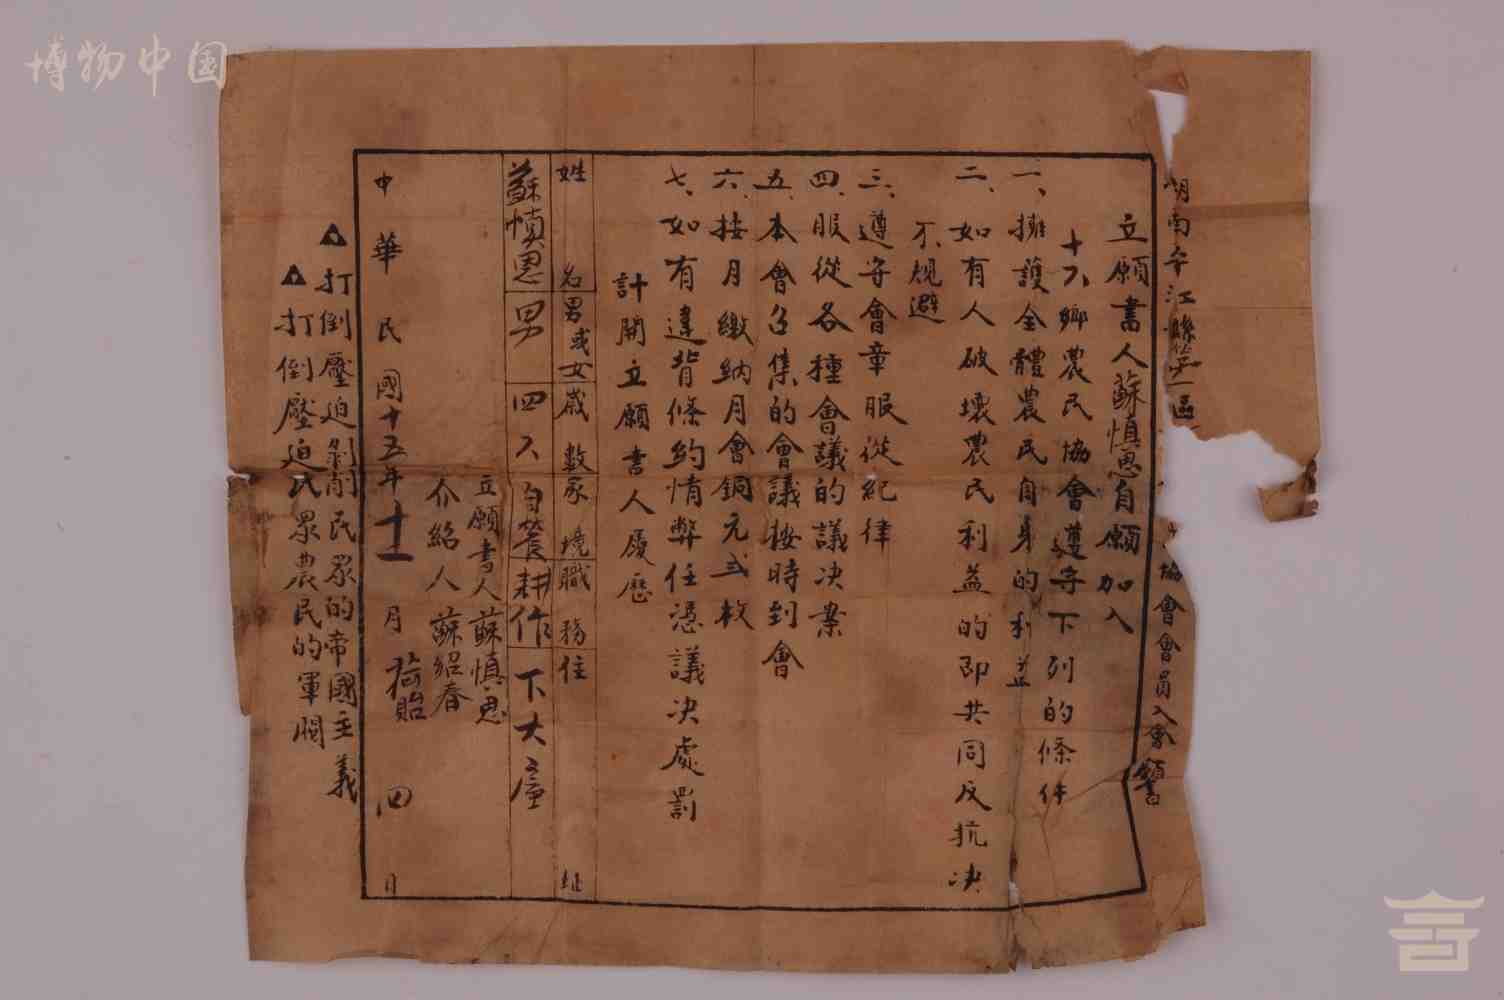 博物中国
湖南平江縣第一區
協會會員入會願書
立願書人蘇慎思自願加入
十六鄉農民協會遵守下列的條件
一、擁護全體農民自身的利益
二、如有人破壞農民利益的即共同反抗决
不規避
三、遵守會章服從紀律
四、服從各種會議的議决案
五、本會召集的會議按時到會
六、按月繳納月會銅元弍枚
七、如有違背條約情弊任憑議决處罰
計開立願書人履歷
姓名 男或女 歲數 家境 職務 住址
蘇慎思 男 四八 自營 耕作 下大
立願書人 蘇慎思
介紹人 蘇紹春
中華民國十五年十一月 四日
▲打倒壓迫剝削民眾的帝國主義
▲打倒壓迫民眾農民的軍閥